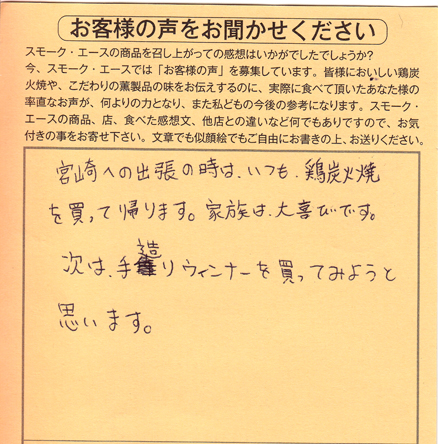 お客様の声をお聞かせください
スモーク・エースの商品を召し上がっての感想はいかがでしたでしょうか?
今、スモーク・エースでは「お客様の声」を募集しています。皆様においしい鶏炭
火焼や、こだわりの薫製品の味をお伝えするのに、実際に食べて頂いたあなた様の
率直なお声が、何よりの力となり、また私どもの今後の参考になります。スモーク・
エースの商品、店、食べた感想文、他店との違いなど何でもありですので、お気
付きの事をお寄せ下さい。文章でも似顔絵でもご自由にお書きの上、お送りください。
宮崎への出張の時は、いつも、鶏炭火焼
を買って帰ります。家族は、大喜びです。
次は、手造りウィンナーを買ってみようと
思います。